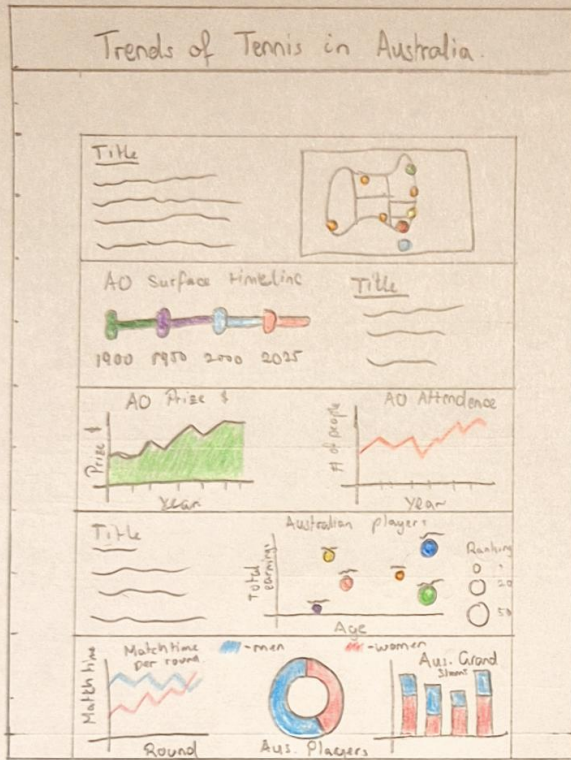 Trends of Tennis in Australia.
Title
AO Surface timeline
Title
1900 1950 2000 2025
AO Prize $
Prize $
Year
AO Attendence
# of people
Year
Title
Australian players
Total
earnings
Age
Ranking
50
Match time
per round
-men
-women
Match time
Round
Aus. Players
Aus. Grand
Slams